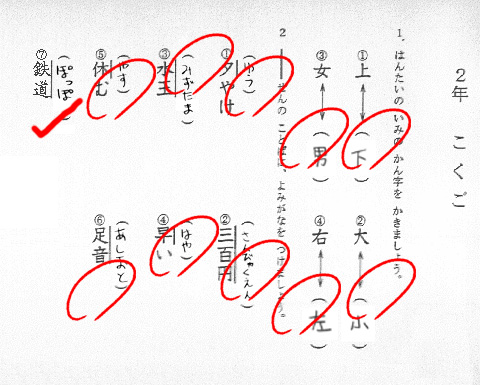 2年 こくご
1. はんたいの いみの かん字を かきましょう。
①上↔(下)
②大↔(小)
③女↔(男)
④右↔(左)
2 ――せんの ことばに、よみがなを つけましょう。
(ゆう)
①夕やけ
(さんびゃくえん)
②三百円
(みずたま)
③水玉
(はや)
④早い
(やす)
⑤休む
(あしおと)
⑥足音
(ぽっぽ)
⑦鉄道